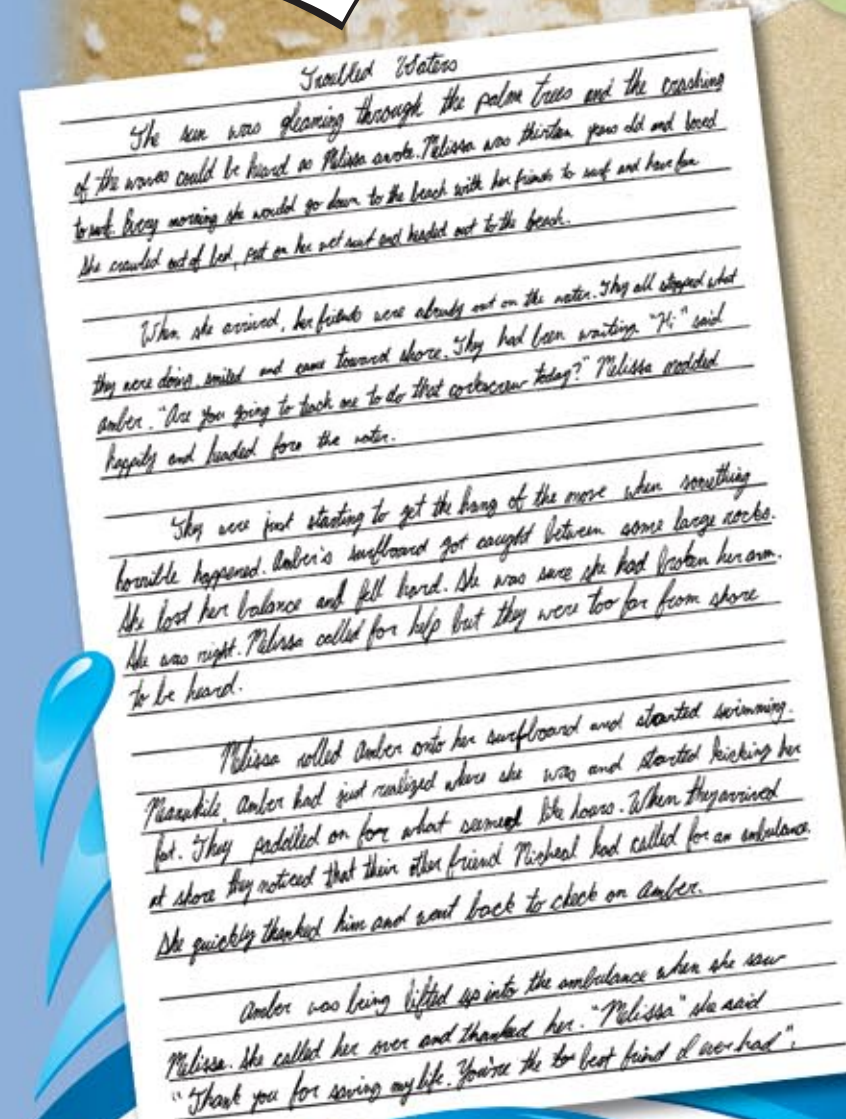 Troubled Waters
The sun was gleaming through the palm trees and the crashing
of the waves could be heard as Melissa awoke. Melissa was thirteen years old and loved
to surf. Every morning she would go down to the beach with her friends to surf and have fun
She crawled out of bed, put on her wet suit and headed out to the beach.
When she arrived, her friends were already out on the water. They all stopped what
they were doing, smiled and came toward shore. They had been waiting. "Hi" said
amber. "Are you going to teach me to do that corkscrew today?" Melissa nodded
happily and headed fore the water.
They were just starting to get the hang of the move when something
horrible happened. Amber's surfboard got caught between some large rocks.
She lost her balance and fell hard. She was sure she had broken her arm.
She was right. Melissa called for help but they were too far from shore
to be heard.
Melissa rolled Amber onto her surfboard and started swimming.
Meanwhile, Amber had just realized where she was and started kicking her
feet. They paddled on for what seemed like hours. When they arrived
at shore they noticed that their other friend Micheal had called for an ambulance.
She quickly thanked him and went back to check on Amber.
Amber was being lifted up into the ambulance when she saw
Melissa. She called her over and thanked her. "Melissa" she said
"Thank you for saving my life. You're the best friend I ever had".